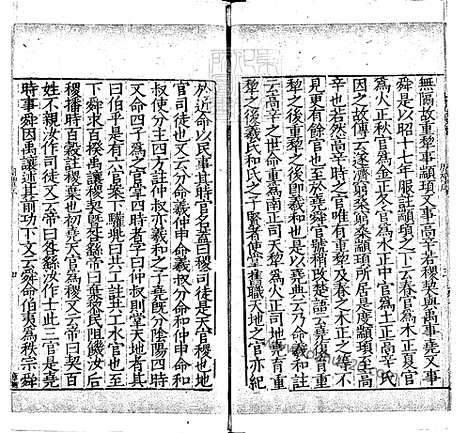 無隔故重黎事顓頊又事高辛若稷契與禹事堯又事
舜是以昭十七年服註顓頊之下云春官為木正夏官
為火正秋官為金正冬官為水正中官為土正高辛氏
因之故傳云遂濟窮桑窮桑顓頊所居是度顓頊至高
辛也若然高辛之時唯有重黎及春之木正之等不
見更有餘官也至於堯舜官號稍改楚語云堯復育重
黎之後重黎之後即羲和也是以堯典云乃命羲和註
云高辛之世命重為南正司天黎為火正司地堯育重
黎之後羲氏和氏之子賢者使掌舊職天地之官亦紀
於近命以民事其時官名蓋曰稷司徒是天官稷也地
官司徒也又云分命羲仲申命羲叔分命和仲申命和
叔使分主四方註仲叔亦羲和之子堯既分陰陽四時
又命四子為之官掌四時者字曰仲叔則掌天地者其
曰伯乎是有六官案下驩兜曰共工註共工水官也至
下舜求百揆禹讓稷契暨咎繇帝曰棄黎民阻飢汝后
稷播時百穀註稷棄也初堯天官為稷又云帝曰契百
姓不親汝作司徒又云帝曰咎繇汝作士此三官是堯
時事舜因禹讓述其前功下文云舜命伯夷為秩宗舜